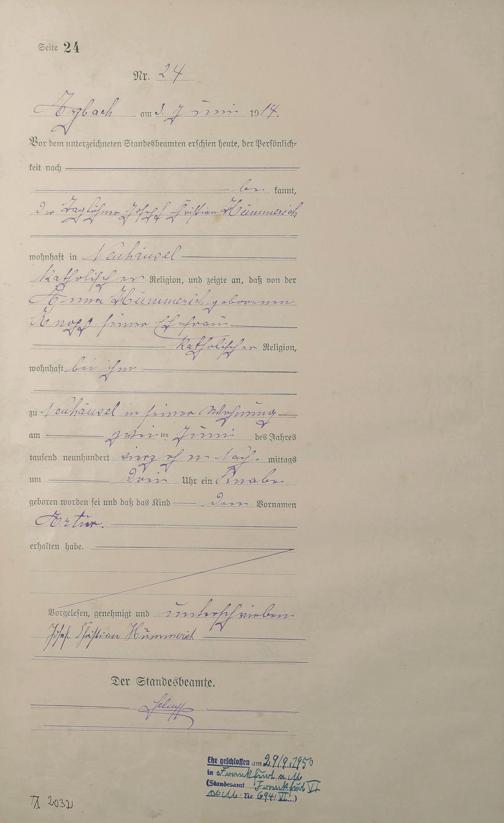 Seite 24
Nr. 24
am Juni 1914.
Vor dem unterzeichneten Standesbeamten erschien heute, der Persönlich-
keit nach
be kannt,
der Taglöhner Josef Christian Hümmerich
wohnhaft in Neuhäusel
katholischer Religion, und zeigte an, daß von der
Anna Hümmerich, geborenen
Knopp seiner Ehefrau
katholischer Religion,
wohnhaft bei ihm
zu Neuhäusel in seiner Wohnung
am zweiten Juni des Jahres
tausend neunhundert vierzehn Nach mittags
um drei Uhr ein Knabe
geboren worden sei und daß das Kind den Vornamen
Artur.
erhalten habe.
Vorgelesen, genehmigt und unterschrieben
Josef Christian Hümmerich
Der Standesbeamte.
Ehe geschlossen am 29/9.1950
in Frankfurt a.M.
(Standesamt Frankfurt VI
Nr. 694/VI)